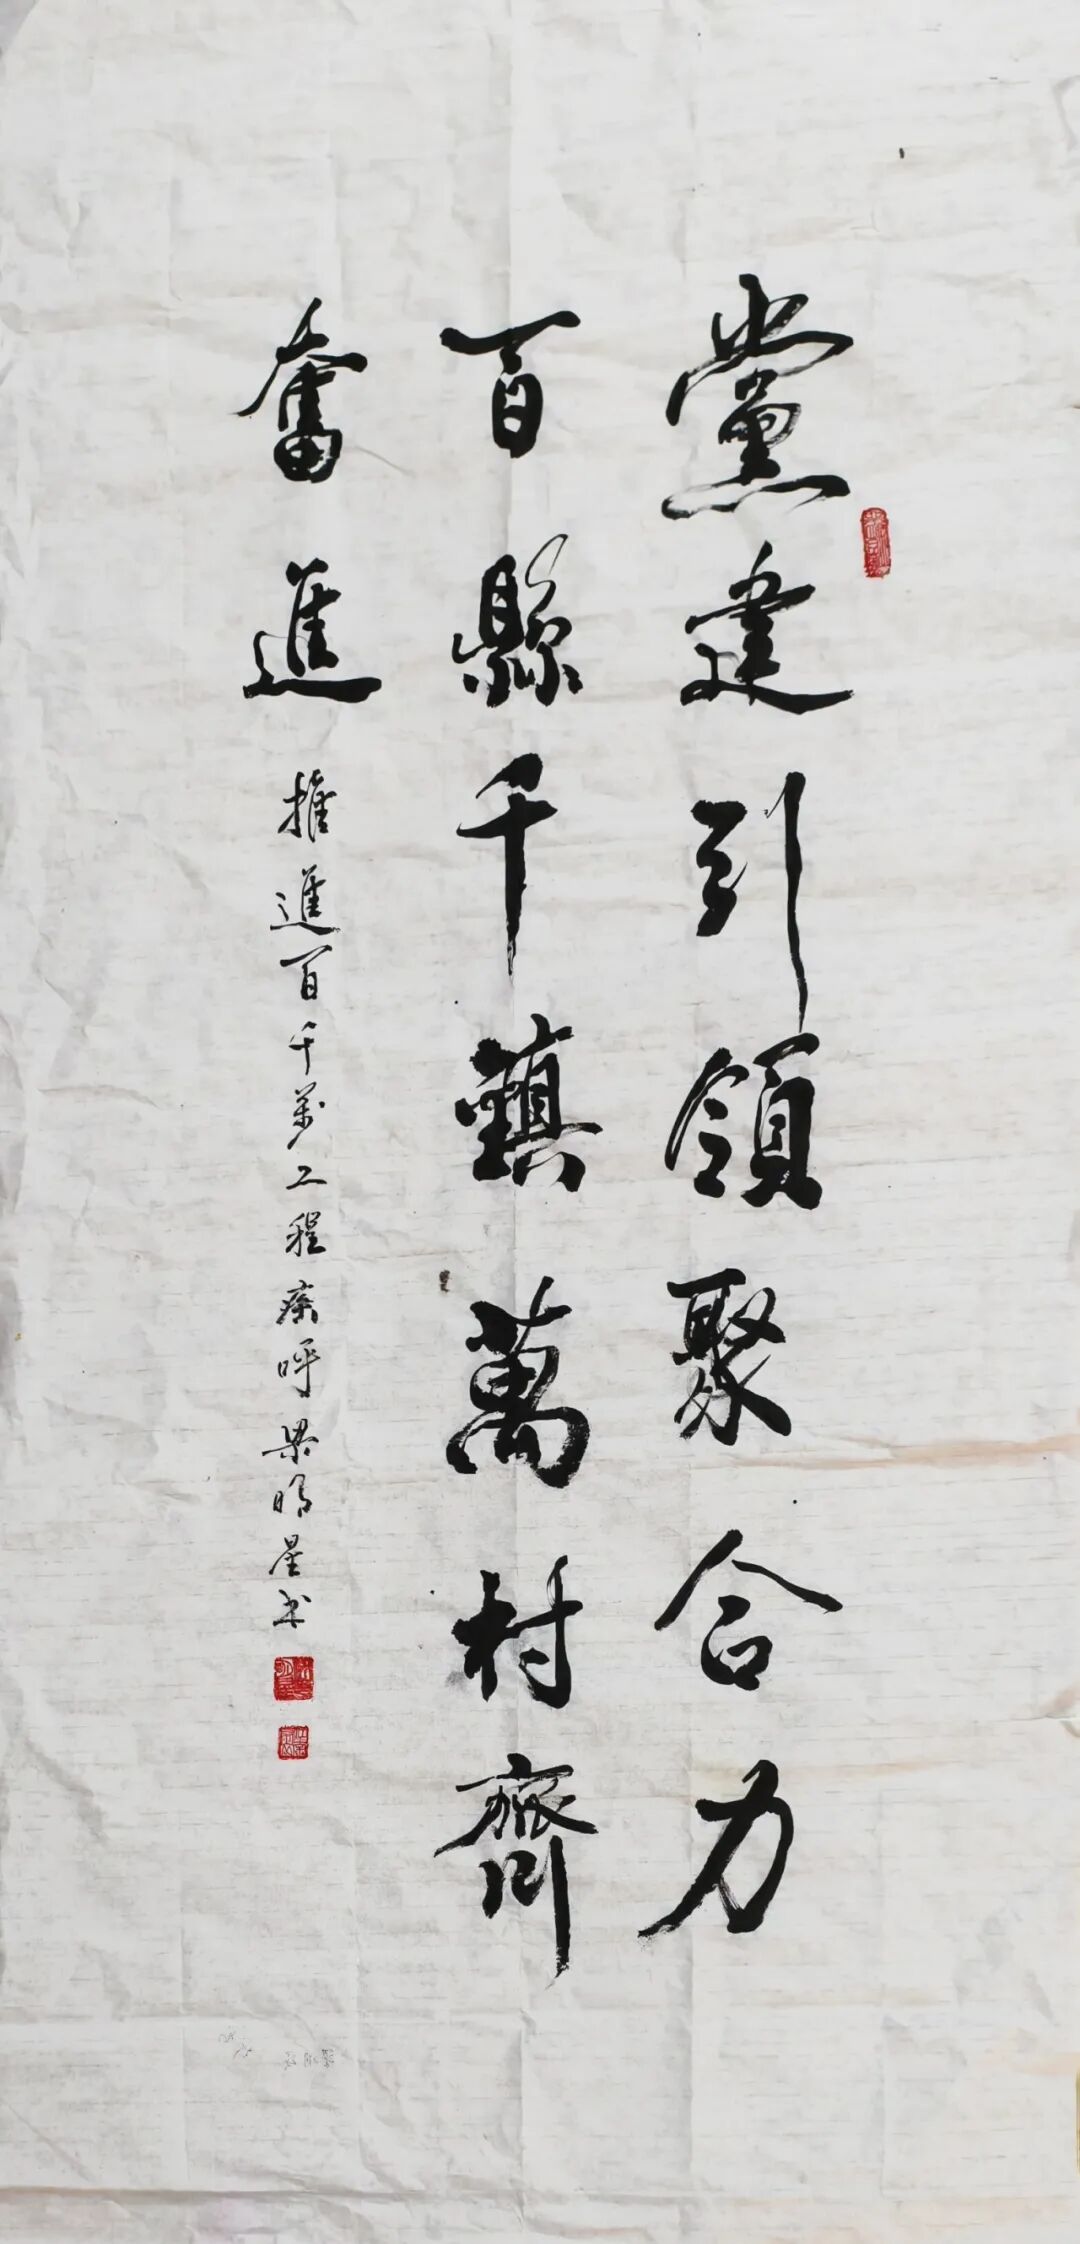 黨建引領聚合力
百縣千鎮萬村齊
奮進
推進百千萬工程疾呼 梁明星书